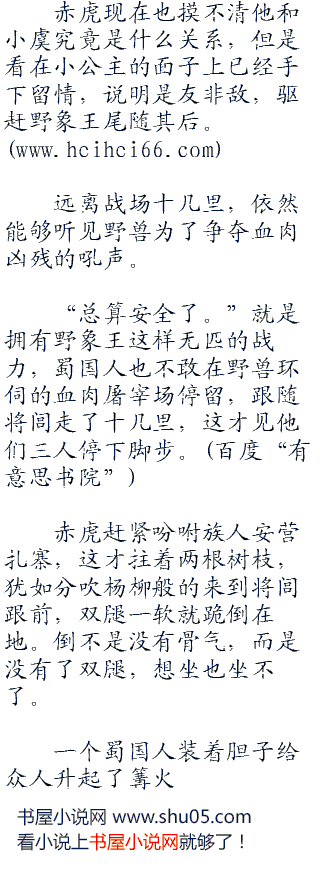 赤虎现在也摸不清他和
小虞究竟是什么关系，但是
看在小公主的面子上已经手
下留情，说明是友非敌，驱
赶野象王尾随其后。
(www.hcihci66.com)
远离战场十几里，依然
能够听见野兽为了争夺血肉
凶残的吼声。
“总算安全了。”就是
拥有野象王这样无匹的战
力，蜀国人也不敢在野兽环
伺的血肉屠宰场停留，跟随
将闾走了十几里，这才见他
们三人停下脚步。(百度“有
意思书院”)
赤虎赶紧吩咐族人安营
扎寨，这才拄着两根树枝，
犹如分吹杨柳般的来到将闾
跟前，双腿一软就跪倒在
地。倒不是没有骨气，而是
没有了双腿，想坐也坐不
了。
一个蜀国人装着胆子给
众人升起了篝火
书屋小说网 www.shu05.com
看小说上书屋小说网就够了！